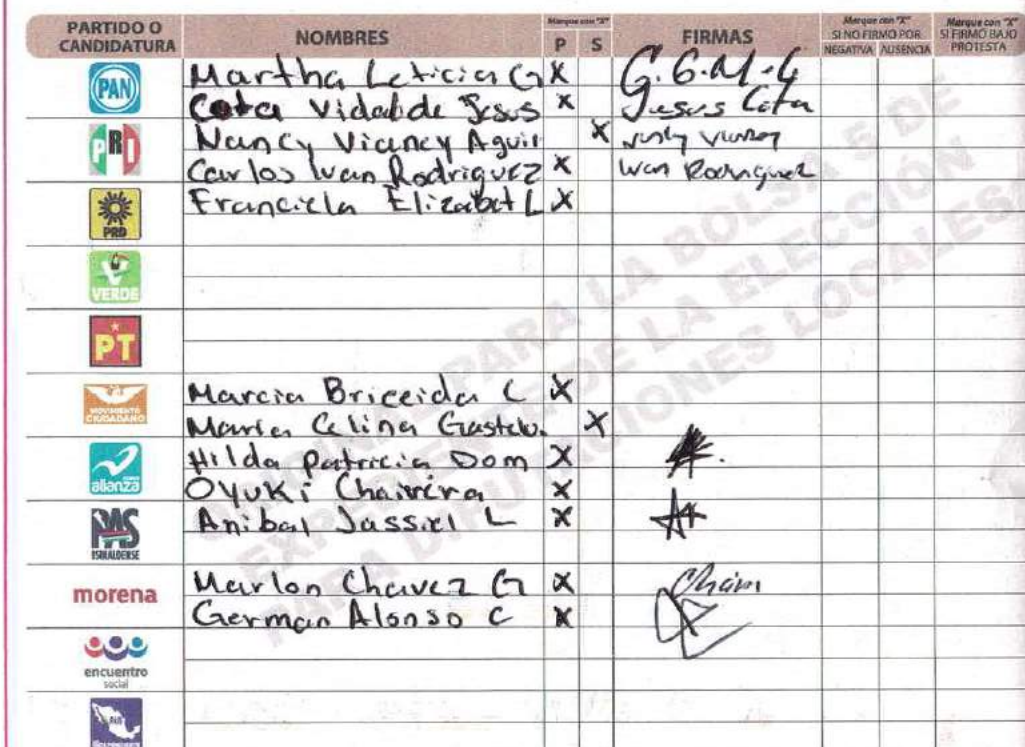 PARTIDO O CANDIDATURA NOMBRES Marque con "X" P S FIRMAS Marque con "X" SI NO FIRMO POR NEGATIVA AUSENCIA Marque con "X" SI FIRMÓ BAJO PROTESTA
PAN Martha Leticia G X G.G.M.L
Cota Vidal de Jesus X Jesus Cota
PRI Nancy Vianey Aguil X
Carlos Ivan Rodriguez X Ivan Rodriguez
PRD Franciela Elizabet L X
VERDE
PT
MOVIMIENTO CIUDADANO Marcia Briceida C X
Maria Celina Gastelu. X
alianza Hilda Patricia Dom X
Oyuki Chaireira X
PAS SINALOENSE Anibal Jassiel L X
morena Marlon Chavez G X
German Alonso C X
encuentro social
PARA LA BOLSA 5 DE
EXPEDIENTE DE LA ELECCIÓN
PARA DIPUTACIONES LOCALES